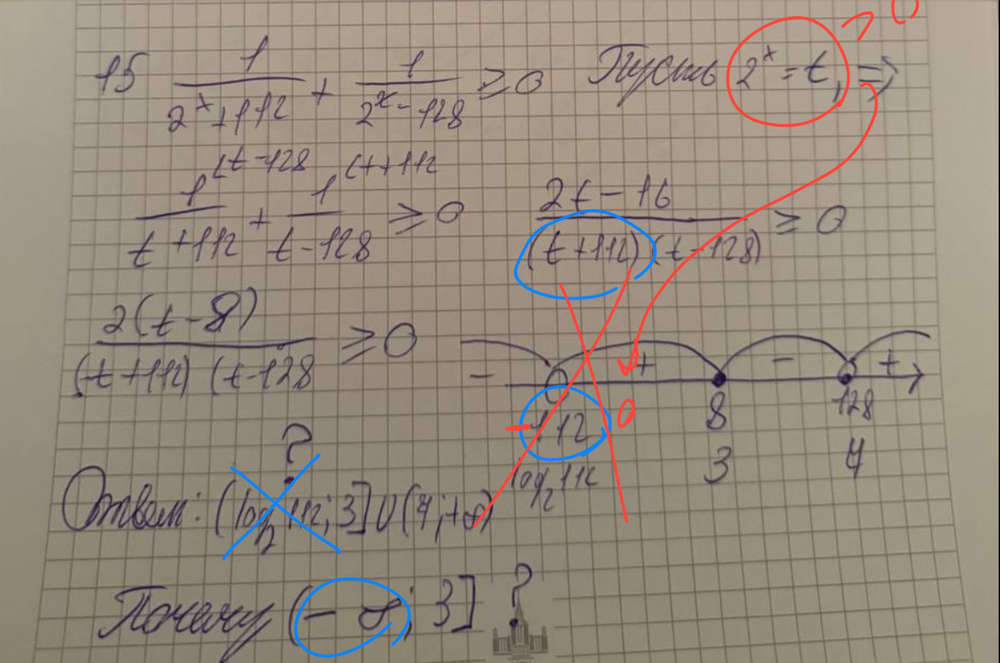 15 1/(2^x+112) + 1/(2^x-128) ≥ 0 Пусть 2^x = t, ⇒ > 0
1^(t-128/(t+112) + 1^(t+112/(t-128) ≥ 0 (2t-16)/((t+112)(t-128)) ≥ 0
2(t-8)/((t+112)(t-128 ≥ 0
- + - +
-112 0 8 128
log₂112 3 7
?
Ответ: (log₂112; 3]∪(7;+∞)
Почему (-∞; 3] ?